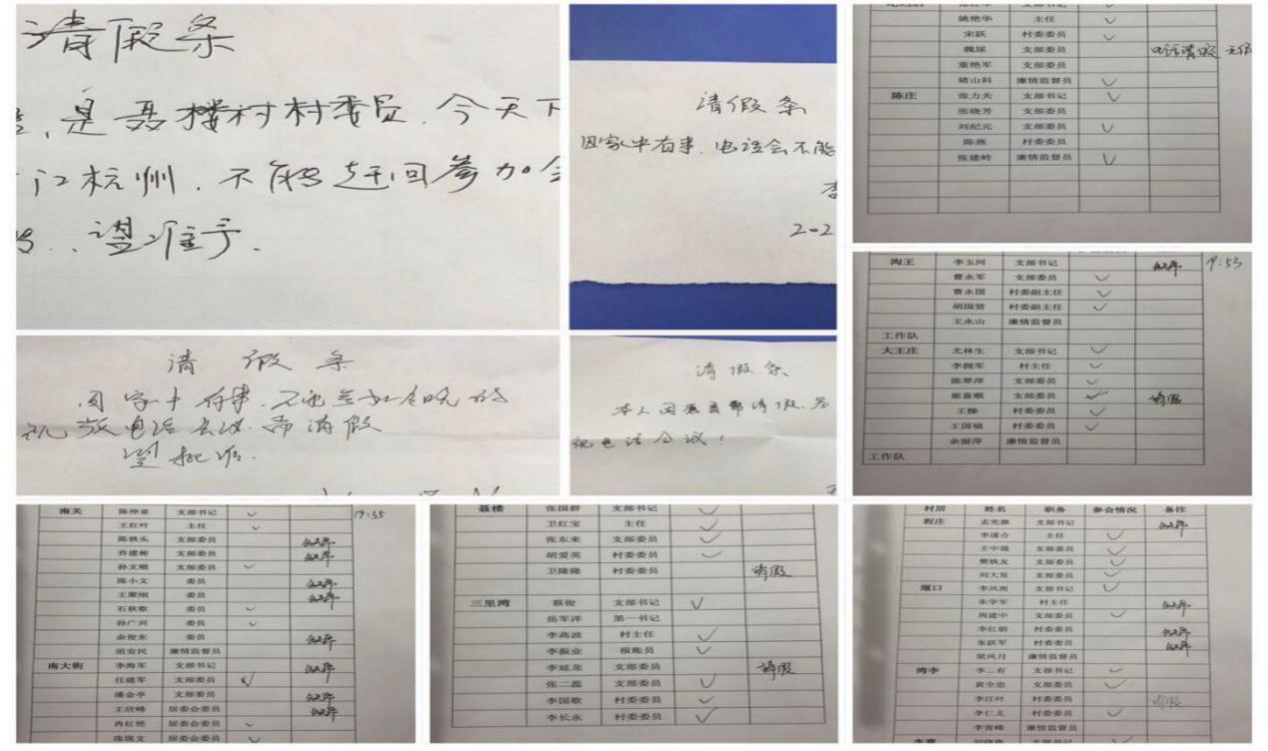 请假条
是聂楼村村委员.今天下
江杭州.不能赶回参加会
望准予.
请假条
因家中有事.电话会不能
李
202
请假条
因家中有事.不能参加今晚的
视频电话会议.需请假
望批准.
请假条
视电话会议!
姚艳华 主任 ✓
宋跃 村委委员 ✓
支部委员 电话请假
童艳军 支部委员
褚山科 廉情监督员 ✓
陈庄 张力夫 支部书记 ✓
张晓芳 支部委员
刘纪元 支部委员 ✓
陈燕 村委委员
张建岭 廉情监督员 ✓
沟王 李玉河 支部书记 19:53
曹永军 支部委员 ✓
曹永国 村委副主任 ✓
胡国贤 村委副主任 ✓
王永山 廉情监督员
工作队
大王庄 尤林生 支部书记 ✓
李拥军 村主任 ✓
陈翠萍 支部委员 ✓
崔喜顺 支部委员 ✓ 请假
王操 村委委员 ✓
王国福 村委委员 ✓
余丽萍 廉情监督员
工作队
南关 陈仲重 支部书记 ✓ 19:35
王红叶 主任 ✓
陈铁头 支部委员
乔建彬 支部委员
孙文顺 支部委员 ✓
陈小文 委员
委员
石秋歌 委员 ✓
孙广兴 委员 ✓
余俊东 委员
廉情监督员
南大街 李海军 支部书记
任建军 支部委员 ✓
潘金亭 支部委员
王欣峰 居委会委员
冉红艳 居委会委员 ✓
居委会委员 ✓
聂楼 张国群 支部书记 ✓
卫红宝 主任 ✓
张东来 支部委员 ✓
胡爱英 村委委员 ✓
卫隆隆 村委委员 请假
三里湾 蔡俊 支部书记 ✓
岳军萍 第一书记
李高波 村主任 ✓
李振业 报账员 ✓
李延龙 支部委员 请假
张二蕊 支部委员 ✓
李国歌 村委委员 ✓
李长永 村委委员 ✓
村居 姓名 职务 参会情况 备注
程庄 孟宪旗 支部书记
李道合 主任 ✓
王中强 支部委员 ✓
樊铁友 支部委员 ✓
刘大发 支部委员 ✓
堰口 李凤雨 支部书记 ✓
朱学军 村主任
周建中 支部委员 ✓
李红朝 村委委员
朱跃军 村委委员
梁凤月 廉情监督员
湾李 李二有 支部书记 ✓
黄全忠 支部委员 ✓
李江叶 村委委员 请假
李仁义 村委委员 ✓
李育峰 廉情监督员
支部书记 ✓